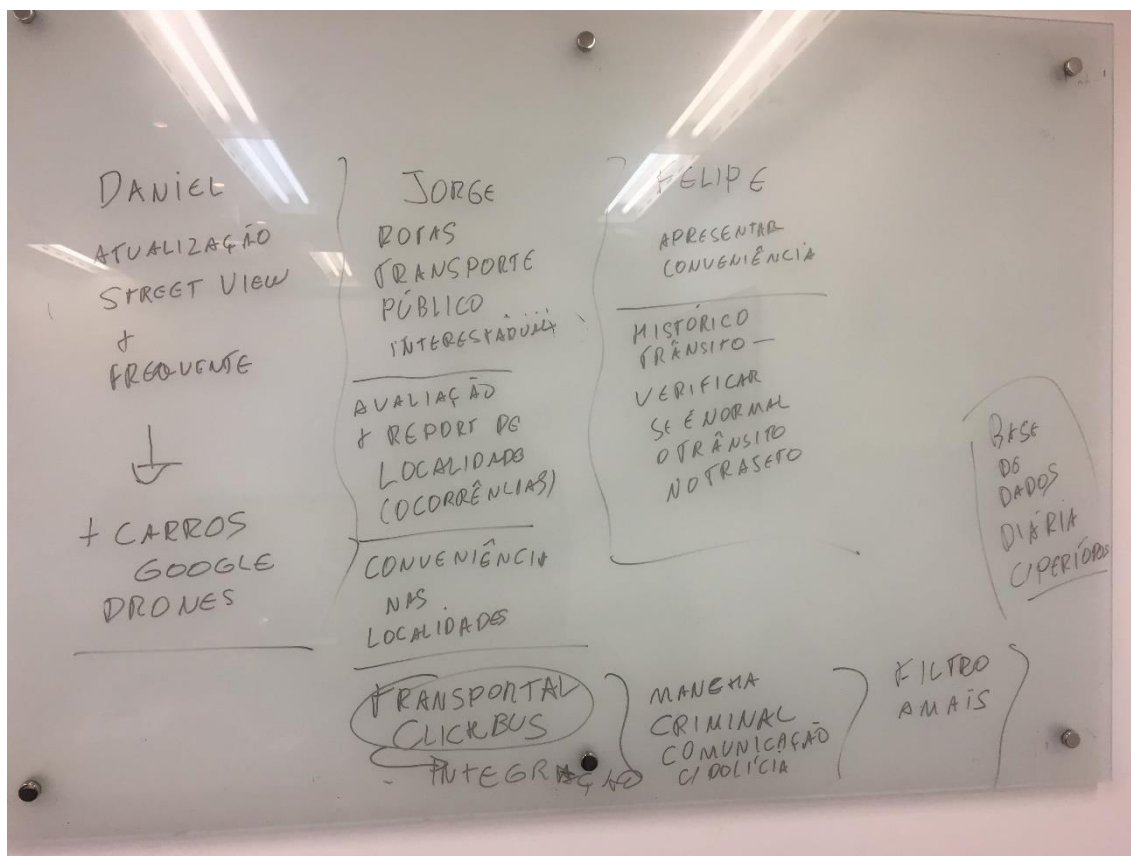 DANIEL
ATUALIZAÇÃO
STREET VIEW
+
FREQUENTE
+ CARROS
GOOGLE
DRONES
JORGE
ROTAS
TRANSPORTE
PÚBLICO
INTERESTADUAL
AVALIAÇÃO
+ REPORT DE
LOCALIDADE
(OCORRÊNCIAS)
CONVENIÊNCIA
NAS
LOCALIDADES
TRANSPORTAL
CLICKBUS
INTEGRAÇÃO
FELIPE
APRESENTAR
CONVENIÊNCIA
HISTÓRICO
TRÂNSITO —
VERIFICAR
SE É NORMAL
O TRÂNSITO
NO TRAJETO
MANCHA
CRIMINAL
COMUNICAÇÃO
C/ POLÍCIA
FILTRO
A MAIS
BASE
DE
DADOS
DIÁRIA
C/ PERÍODOS